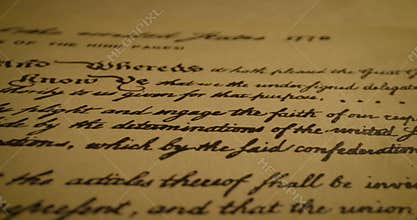 of the United States 1778
OF THE
And Whereas it hath pleased the Great
Know Ye that we the undersigned delegat
thority to us given for that purpose
plight and engage the faith of our resp
de by the determinations of the united
ations, which by the said confederation
the articles thereof shall be invi
represent, and that the union